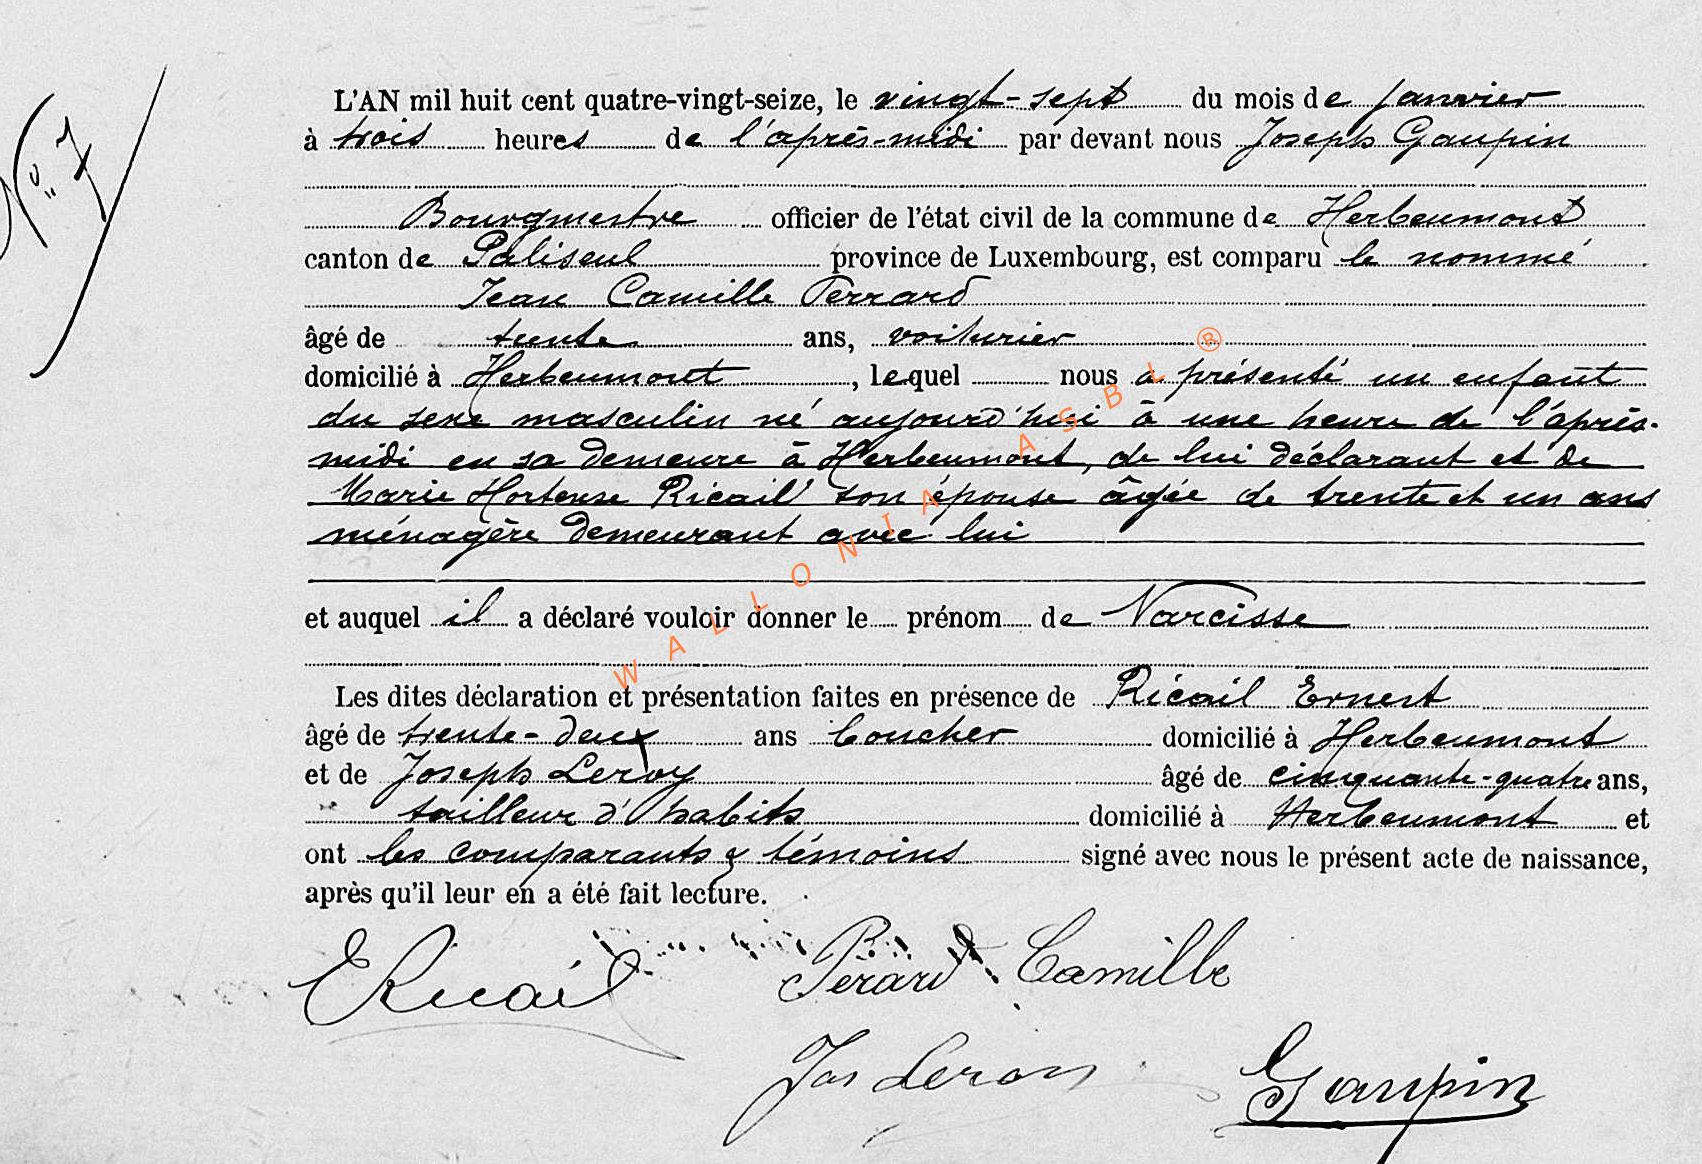 N° 7
L'AN mil huit cent quatre-vingt-seize, le vingt-sept du mois de janvier
à trois heures de l'après-midi par devant nous Joseph Gaupin
Bourgmestre officier de l'état civil de la commune de Herbeumont
canton de Paliseul province de Luxembourg, est comparu le nommé
Jean Camille Perrard
âgé de trente ans, voiturier
domicilié à Herbeumont, lequel nous a présenté un enfant
du sexe masculin né aujourd'hui à une heure de l'après-
midi en sa demeure à Herbeumont, de lui déclarant et de
Marie Hortense Ricail son épouse âgée de trente et un ans
ménagère demeurant avec lui
et auquel il a déclaré vouloir donner le prénom de Narcisse
Les dites déclaration et présentation faites en présence de Ricail Ernest
âgé de trente-deux ans Coucher domicilié à Herbeumont
et de Joseph Leroy âgé de cinquante-quatre ans,
tailleur d'habits domicilié à Herbeumont et
ont les comparants & témoins signé avec nous le présent acte de naissance,
après qu'il leur en a été fait lecture.
E Ricail Pérard Camille
Jos Leroy Gaupin
WALLONIA ASBL ®